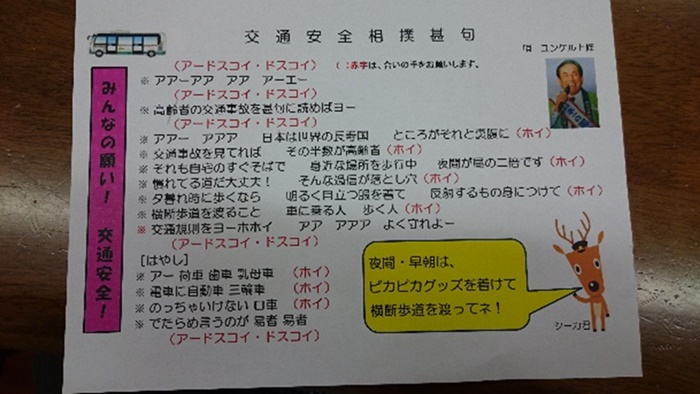 交通安全相撲甚句
唄 ユンケルト輝
（アードスコイ・ドスコイ） （ ：赤字は、合いの手をお願いします。
※ アアーアア アア アーエー
（アードスコイ・ドスコイ）
※ 高齢者の交通事故を甚句に読めばヨー
（アードスコイ・ドスコイ）
※ アアー アアア 日本は世界の長寿国 ところがそれと裏腹に（ホイ）
※ 交通事故を見てれば その半数が高齢者（ホイ）
※ それも自宅のすぐそばで 身近な場所を歩行中 夜間が昼の二倍です（ホイ）
※ 慣れてる道だ大丈夫！ そんな過信が落とし穴（ホイ）
※ 夕暮れ時に歩くなら 明るく目立つ服を着て 反射するもの身につけて（ホイ）
※ 横断歩道を渡ること 車に乗る人 歩く人（ホイ）
※ 交通規則をヨーホホイ アア アアアア よく守れよー
（アードスコイ・ドスコイ）
[はやし]
※ アー 荷車 歯車 乳母車 （ホイ）
※ 電車に自動車 三輪車 （ホイ）
※ のっちゃいけない 口車 （ホイ）
※ でたらめ言うのが 易者 易者
（アードスコイ・ドスコイ）
みんなの願い！ 交通安全！
夜間・早朝は、
ピカピカグッズを着けて
横断歩道を渡ってネ！
シーカ君